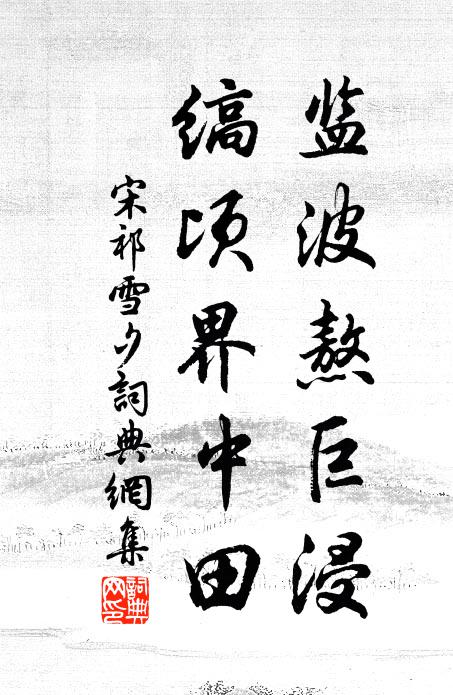 监波熬巨浸
缟顷界中田
宋祁雪夕詞典網集
詞典网印